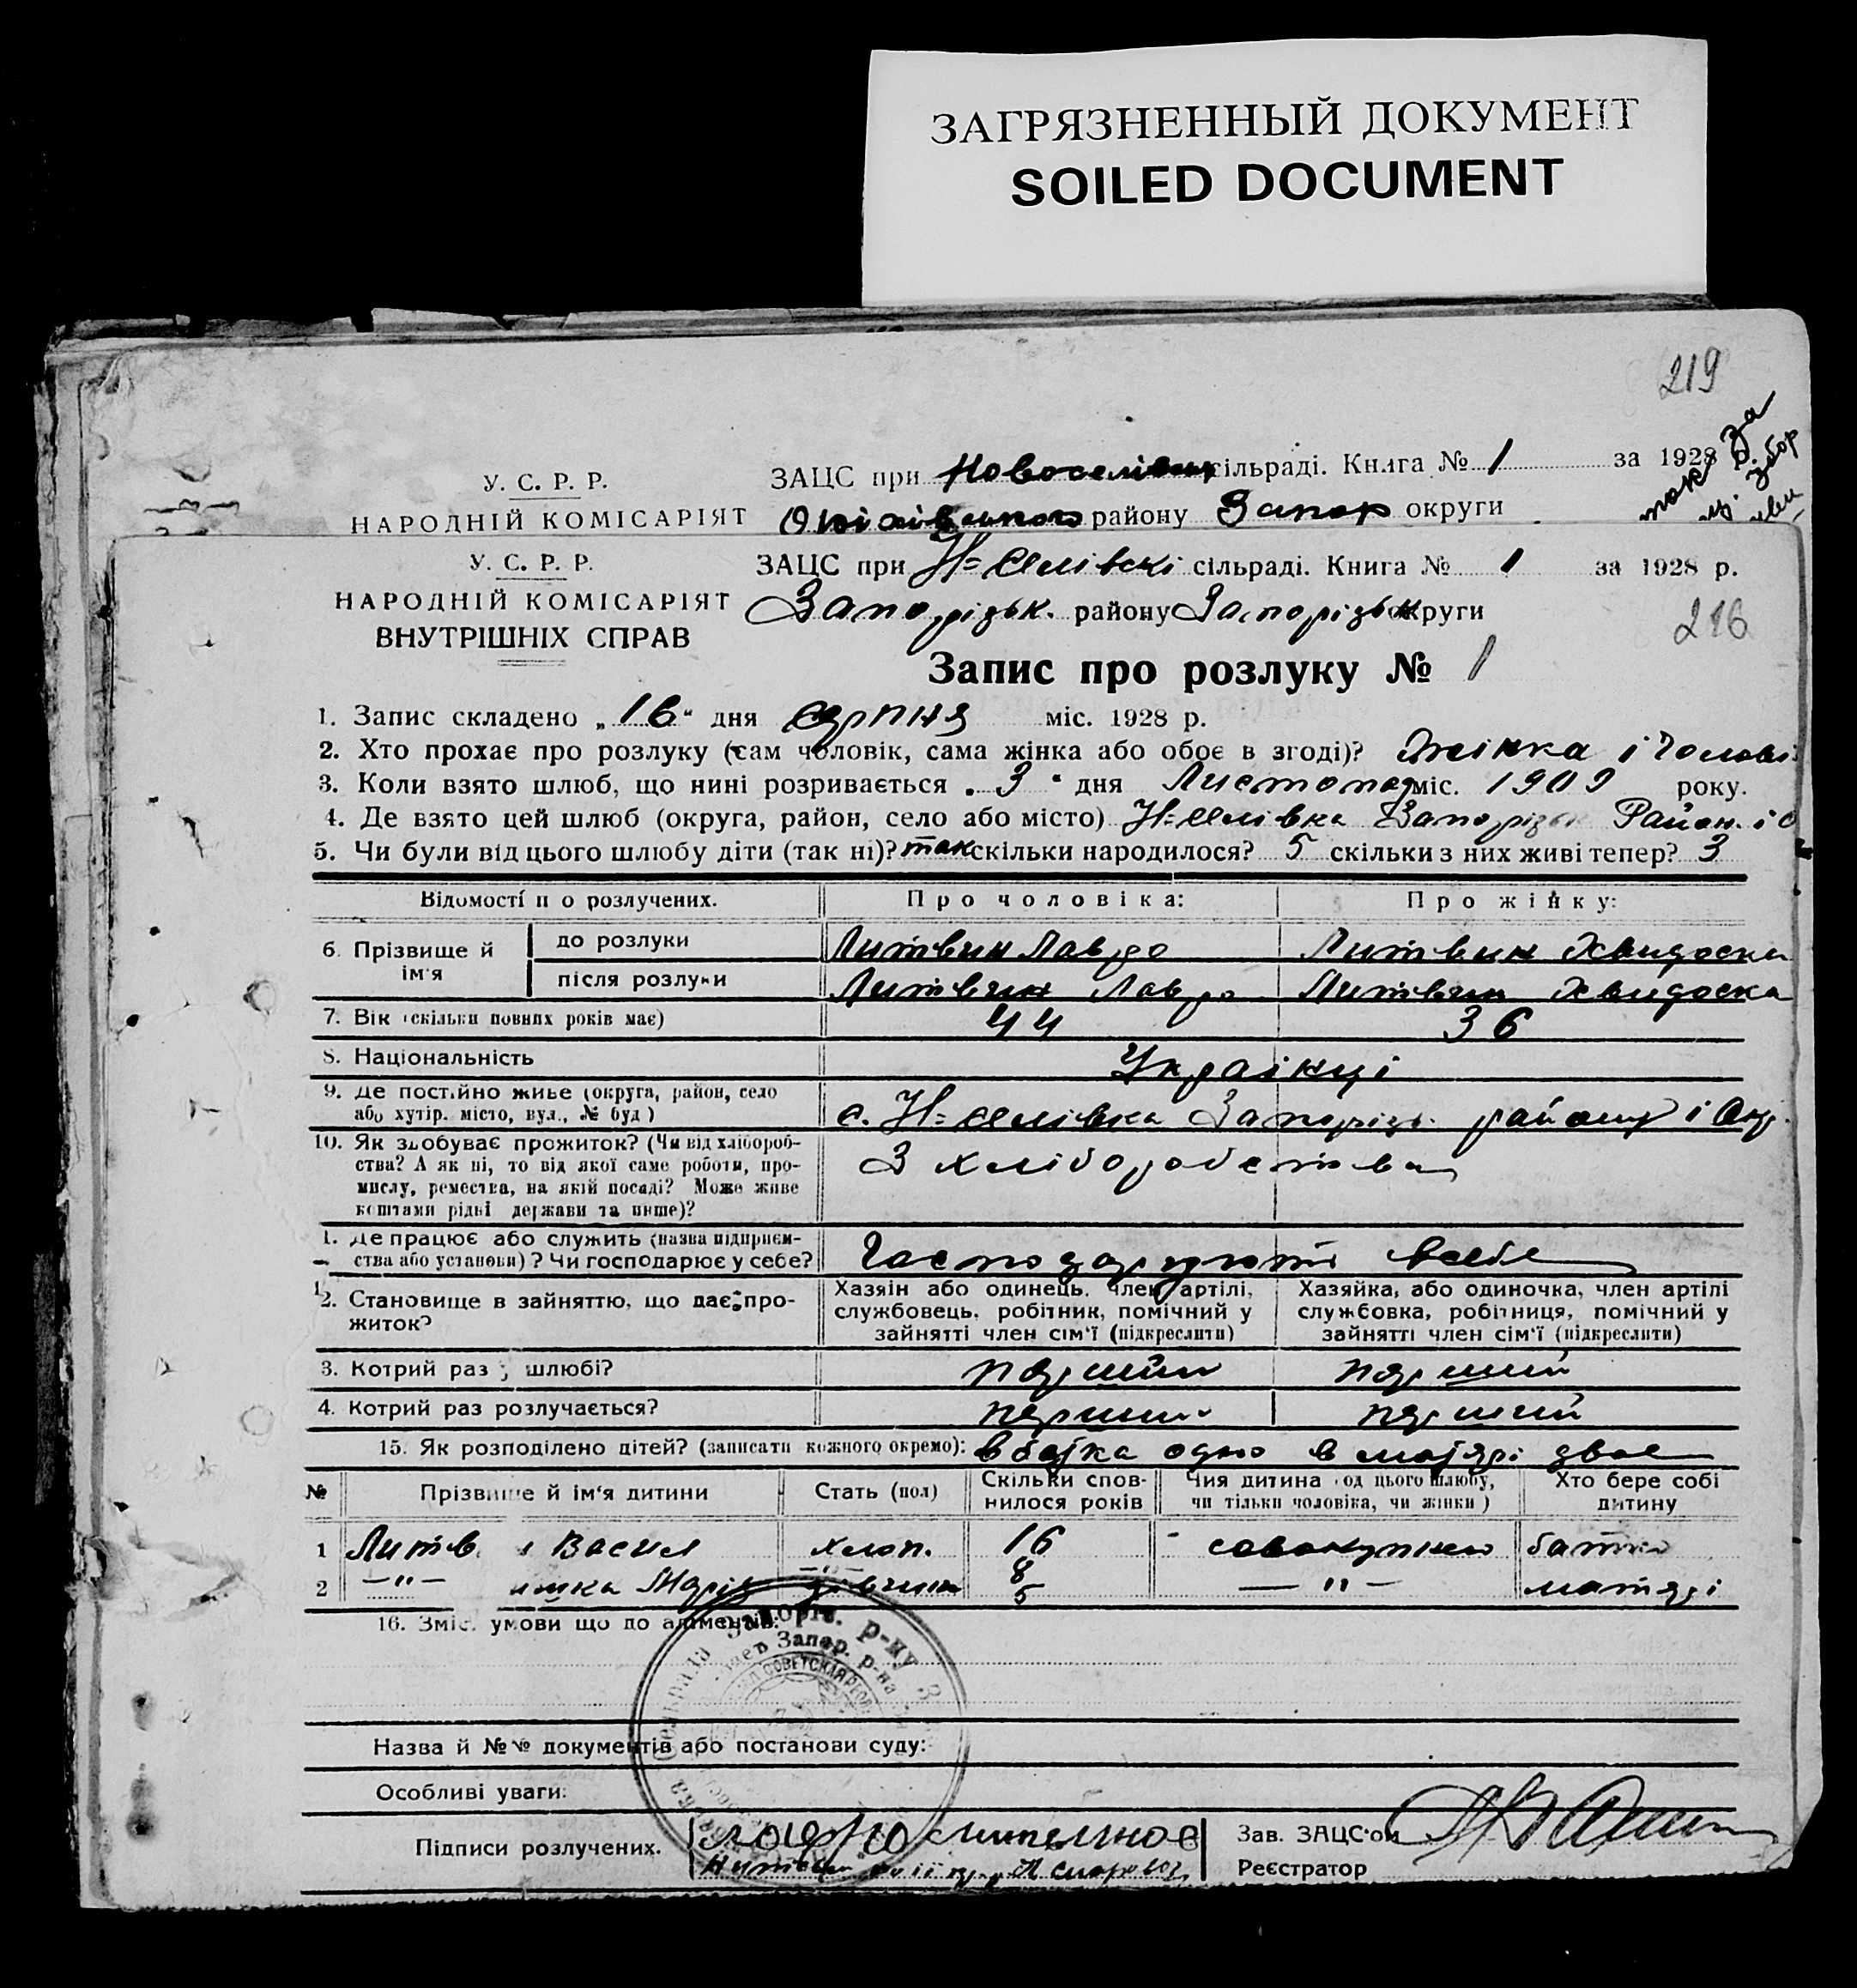 ЗАГРЯЗНЕННЫЙ ДОКУМЕНТ
SOILED DOCUMENT
219
У. С. Р. Р.
НАРОДНІЙ КОМІСАРІЯТ
ЗАЦС при Новоселівськ сільраді. Книга № 1 за 1928
району Запор округи
У. С. Р. Р.
НАРОДНІЙ КОМІСАРІЯТ
ВНУТРІШНІХ СПРАВ
ЗАЦС при Н=Селівскі сільраді. Книга № 1 за 1928 р.
Запорізьк. району Запорізьк округи
216
Запис про розлуку № 1
1. Запис складено „16“ дня серпня міс. 1928 р.
2. Хто прохає про розлуку (сам чоловік, сама жінка або обоє в згоді)? Жінка і Чолові
3. Коли взято шлюб, що нині розривається „3“ дня Листопад міс. 1909 року.
4. Де взято цей шлюб (округа, район, село або місто) Н=Селівка Запорізьк Район. і О
5. Чи були від цього шлюбу діти (так ні)? так скільки народилося? 5 скільки з них живі тепер? 3
Відомості по розлучених.
Про чоловіка:
Про жінку:
6. Прізвище й ім'я
до розлуки
Литвин Лавро
Литвин Хвидоска
після розлуки
Литвин Лавро
Литвин Хвидоска
7. Вік (скільки повних років має)
44
36
8. Національність
Українці
9. Де постійно живе (округа, район, село
або хутір. місто, вул., № буд)
с. Н=Селівка Запорізь. району і Окр.
10. Як здобуває прожиток? (Чи від хлібороб-
ства? А як ні, то від якої саме роботи, про-
мислу, ремества, на якій посаді? Може живе
коштами рідні держави та инше)?
З хліборобства
1. Де працює або служить (назва підприєм-
ства або установи)? Чи господарює у себе?
Господарюють всебе
12. Становище в зайняттю, що дає про-
житок?
Хазяін або одинець, член артілі,
службовець, робітник, помічний у
зайнятті член сім'ї (підкреслити)
Хазяйка, або одиночка, член артілі
службовка, робітниця, помічний у
зайнятті член сім'ї (підкреслити)
3. Котрий раз у шлюбі?
перший
перший
4. Котрий раз розлучається?
перший
перший
15. Як розподілено дітей? (записати кожного окремо): в батька одно в матері двоє
№
Прізвище й ім'я дитини
Стать (пол)
Скільки спов-
нилося років
Чия дитина (од цього шлюбу,
чи тільки чоловіка, чи жінки)
Хто бере собі
дитину
1 Литв Васил хлоп. 16 совокупно батько
2 —"— Марія дівчина 8 —"— матері
5
16. Зміст умови що до аліментів:
Запоріз. р-ну
Запор. р-на
Назва й №№ документів або постанови суду:
Особливі уваги:
Підписи розлучених.
Зав. ЗАЦС'ом
Реєстратор